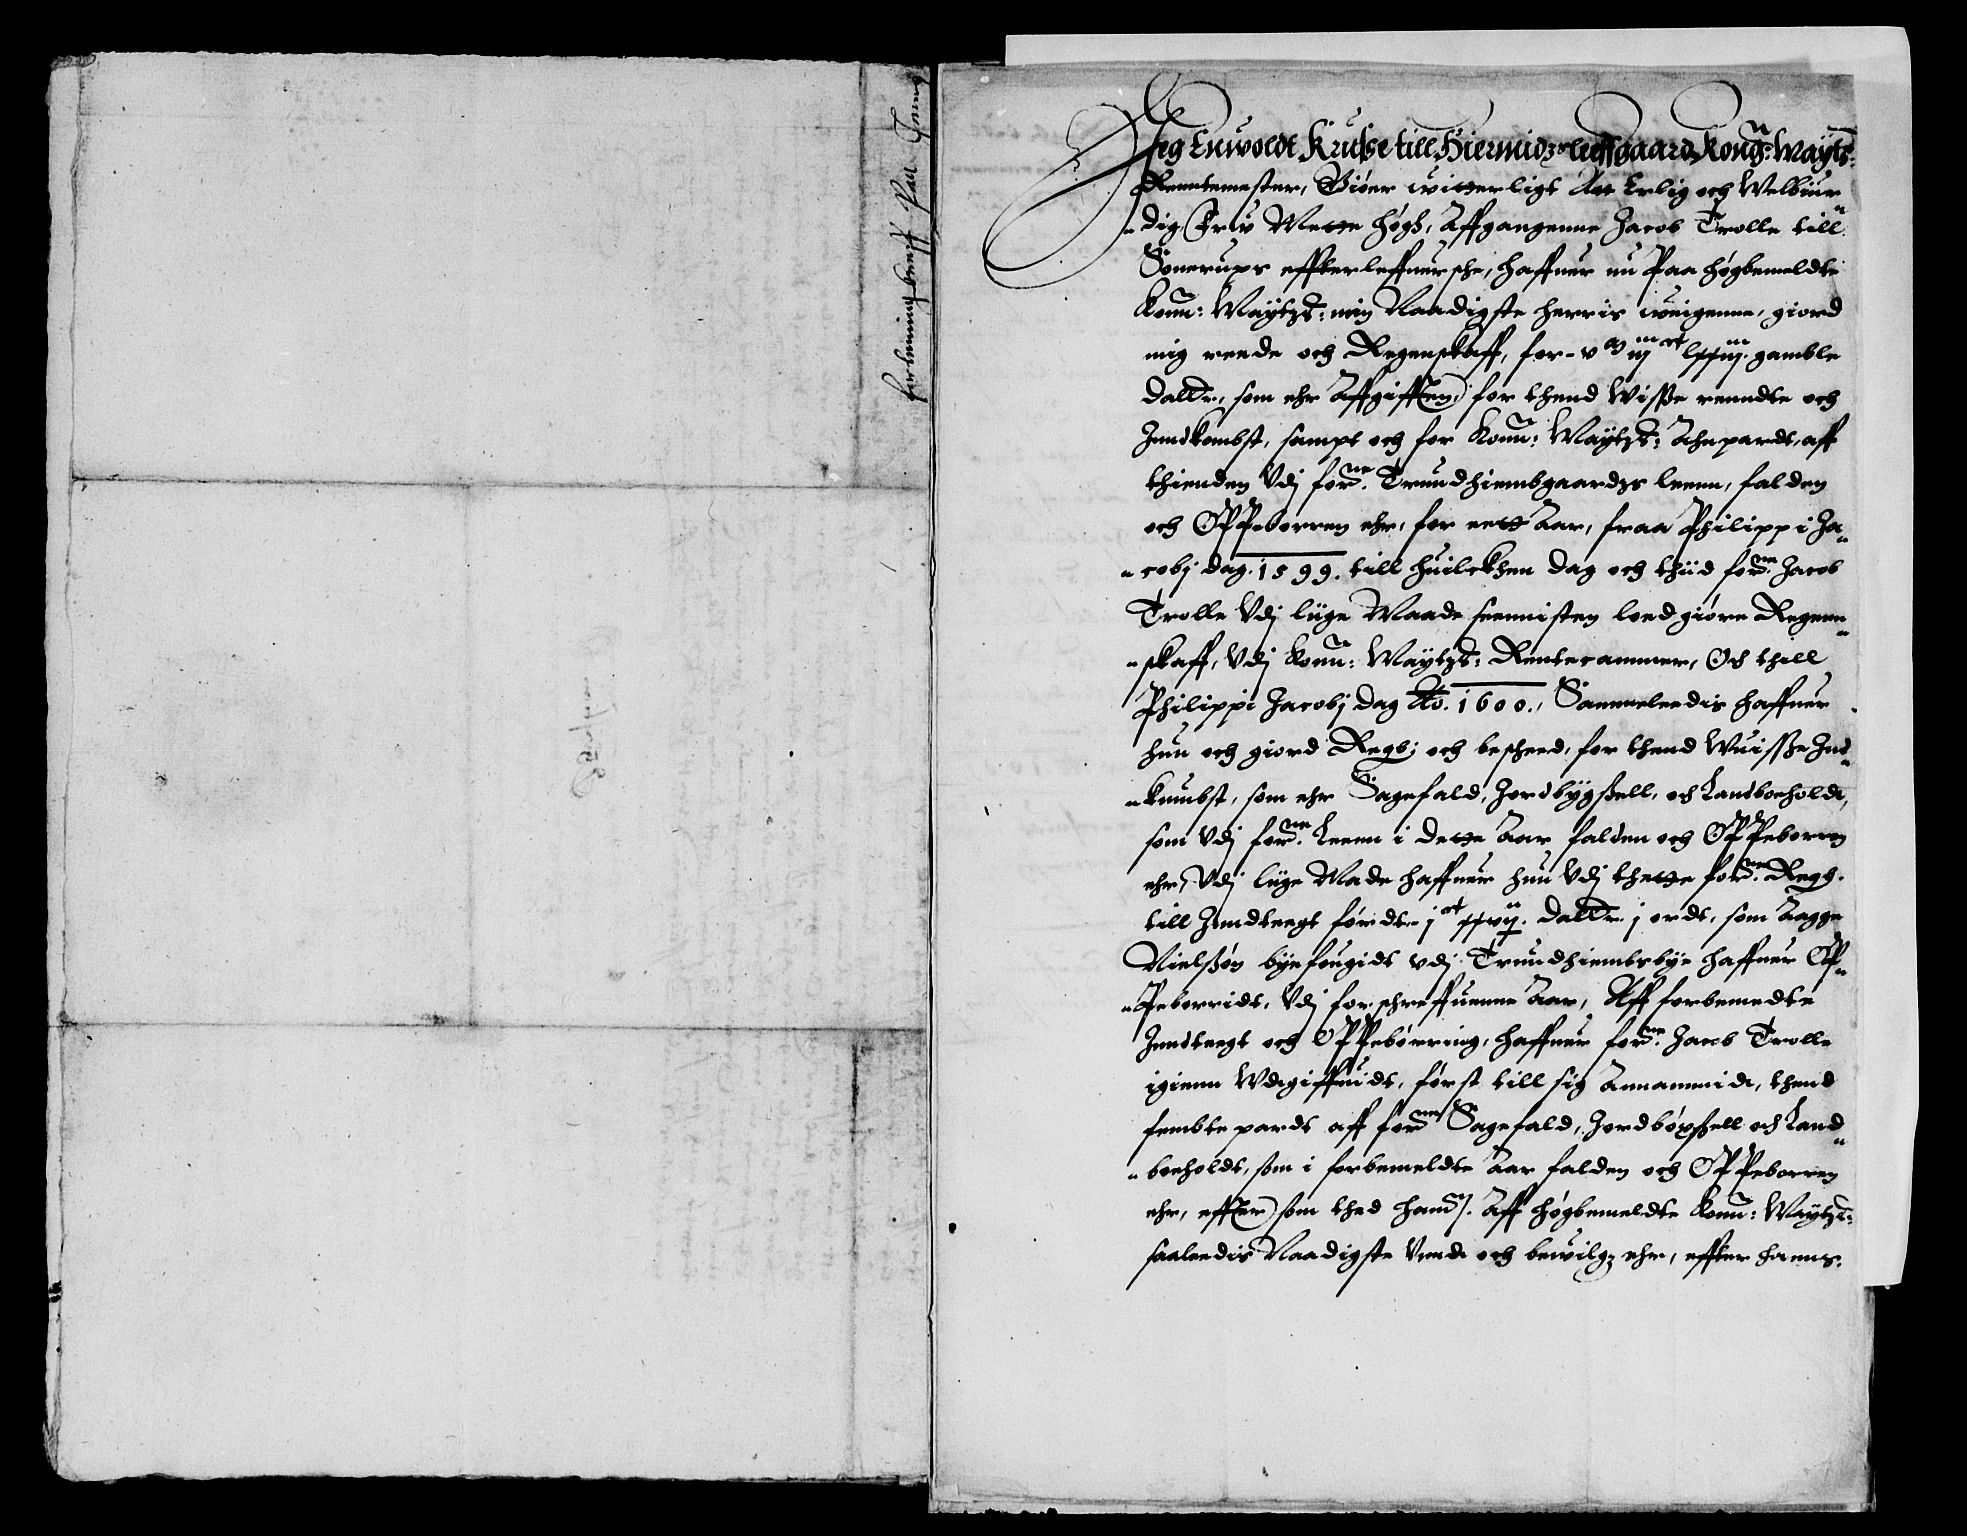 forlening breff paa
Jeg Enwoldt Krusse till Hiermidzløffgaard Konng: Maytz:
Renntemester, Giøer witterligt Att Erlig och Welbiur„
„dig Frw Mette Høgs, Affgangenne Jacob Trolle till
Sonerups effterleffuersche, haffuer nu Paa høgbemeldte
Konn: Maytzs: min Naadigste herris weigenne, giord
mig reede och Regenskaff, for gamble
dallr, som ehr Affgifften, for thend Wisse renndte och
Inndkombst, sampt och for Konn: Maytzs: Anpardt, aff
thienden Vdj forne Trundhiembgaardzs leenn, falden
och OPPeborren ehr, for eett Aar, fraa Philippi Ja„
„cobj dag. 1599. till huilckhen dag och thiid forne Jacob
Trolle Vdj liige Maade seennisten loed giøre Regenn„
„skaff, Vdj Konn: Maytzs: Rentecammer, Och thill
Philippi Jacobj dag Ao. 1600., Sammeleedis haffuer
hun och giord Regs: och bescheed, for thend Wuisse Ind„
„kumbst, som ehr Sagefald, Jordbygssell, och Landboeholdt,
som Vdj forne Leenn i dette Aar falden och OPPeborren
ehr, Vdj liige Made haffuer hun Vdj thette forne Regs.
till Inndtegt førdt j dallr j ordt, som Aagge
Nielssøn byefougidt vdj Trundhiembsbye haffuer OP„
„Peborridt, Vdj forschreffuenne Aar, Aff forbemeldte
Inndtegt och OPPebørring, haffuer forne Jacob Trolle
igienn Wdgiffuidt, først till sig Annammidt, thend
fembte pardt aff forne Sagefald, Jordbøxsell och Land„
„boeholdt, som i forbemeldte Aar falden och OPPeborren
ehr, effter som thed hannom Aff høgbemeldte Konn: Maytzs:
saaleedis Naadigste Vndt och bewilgt ehr, effter hanns.